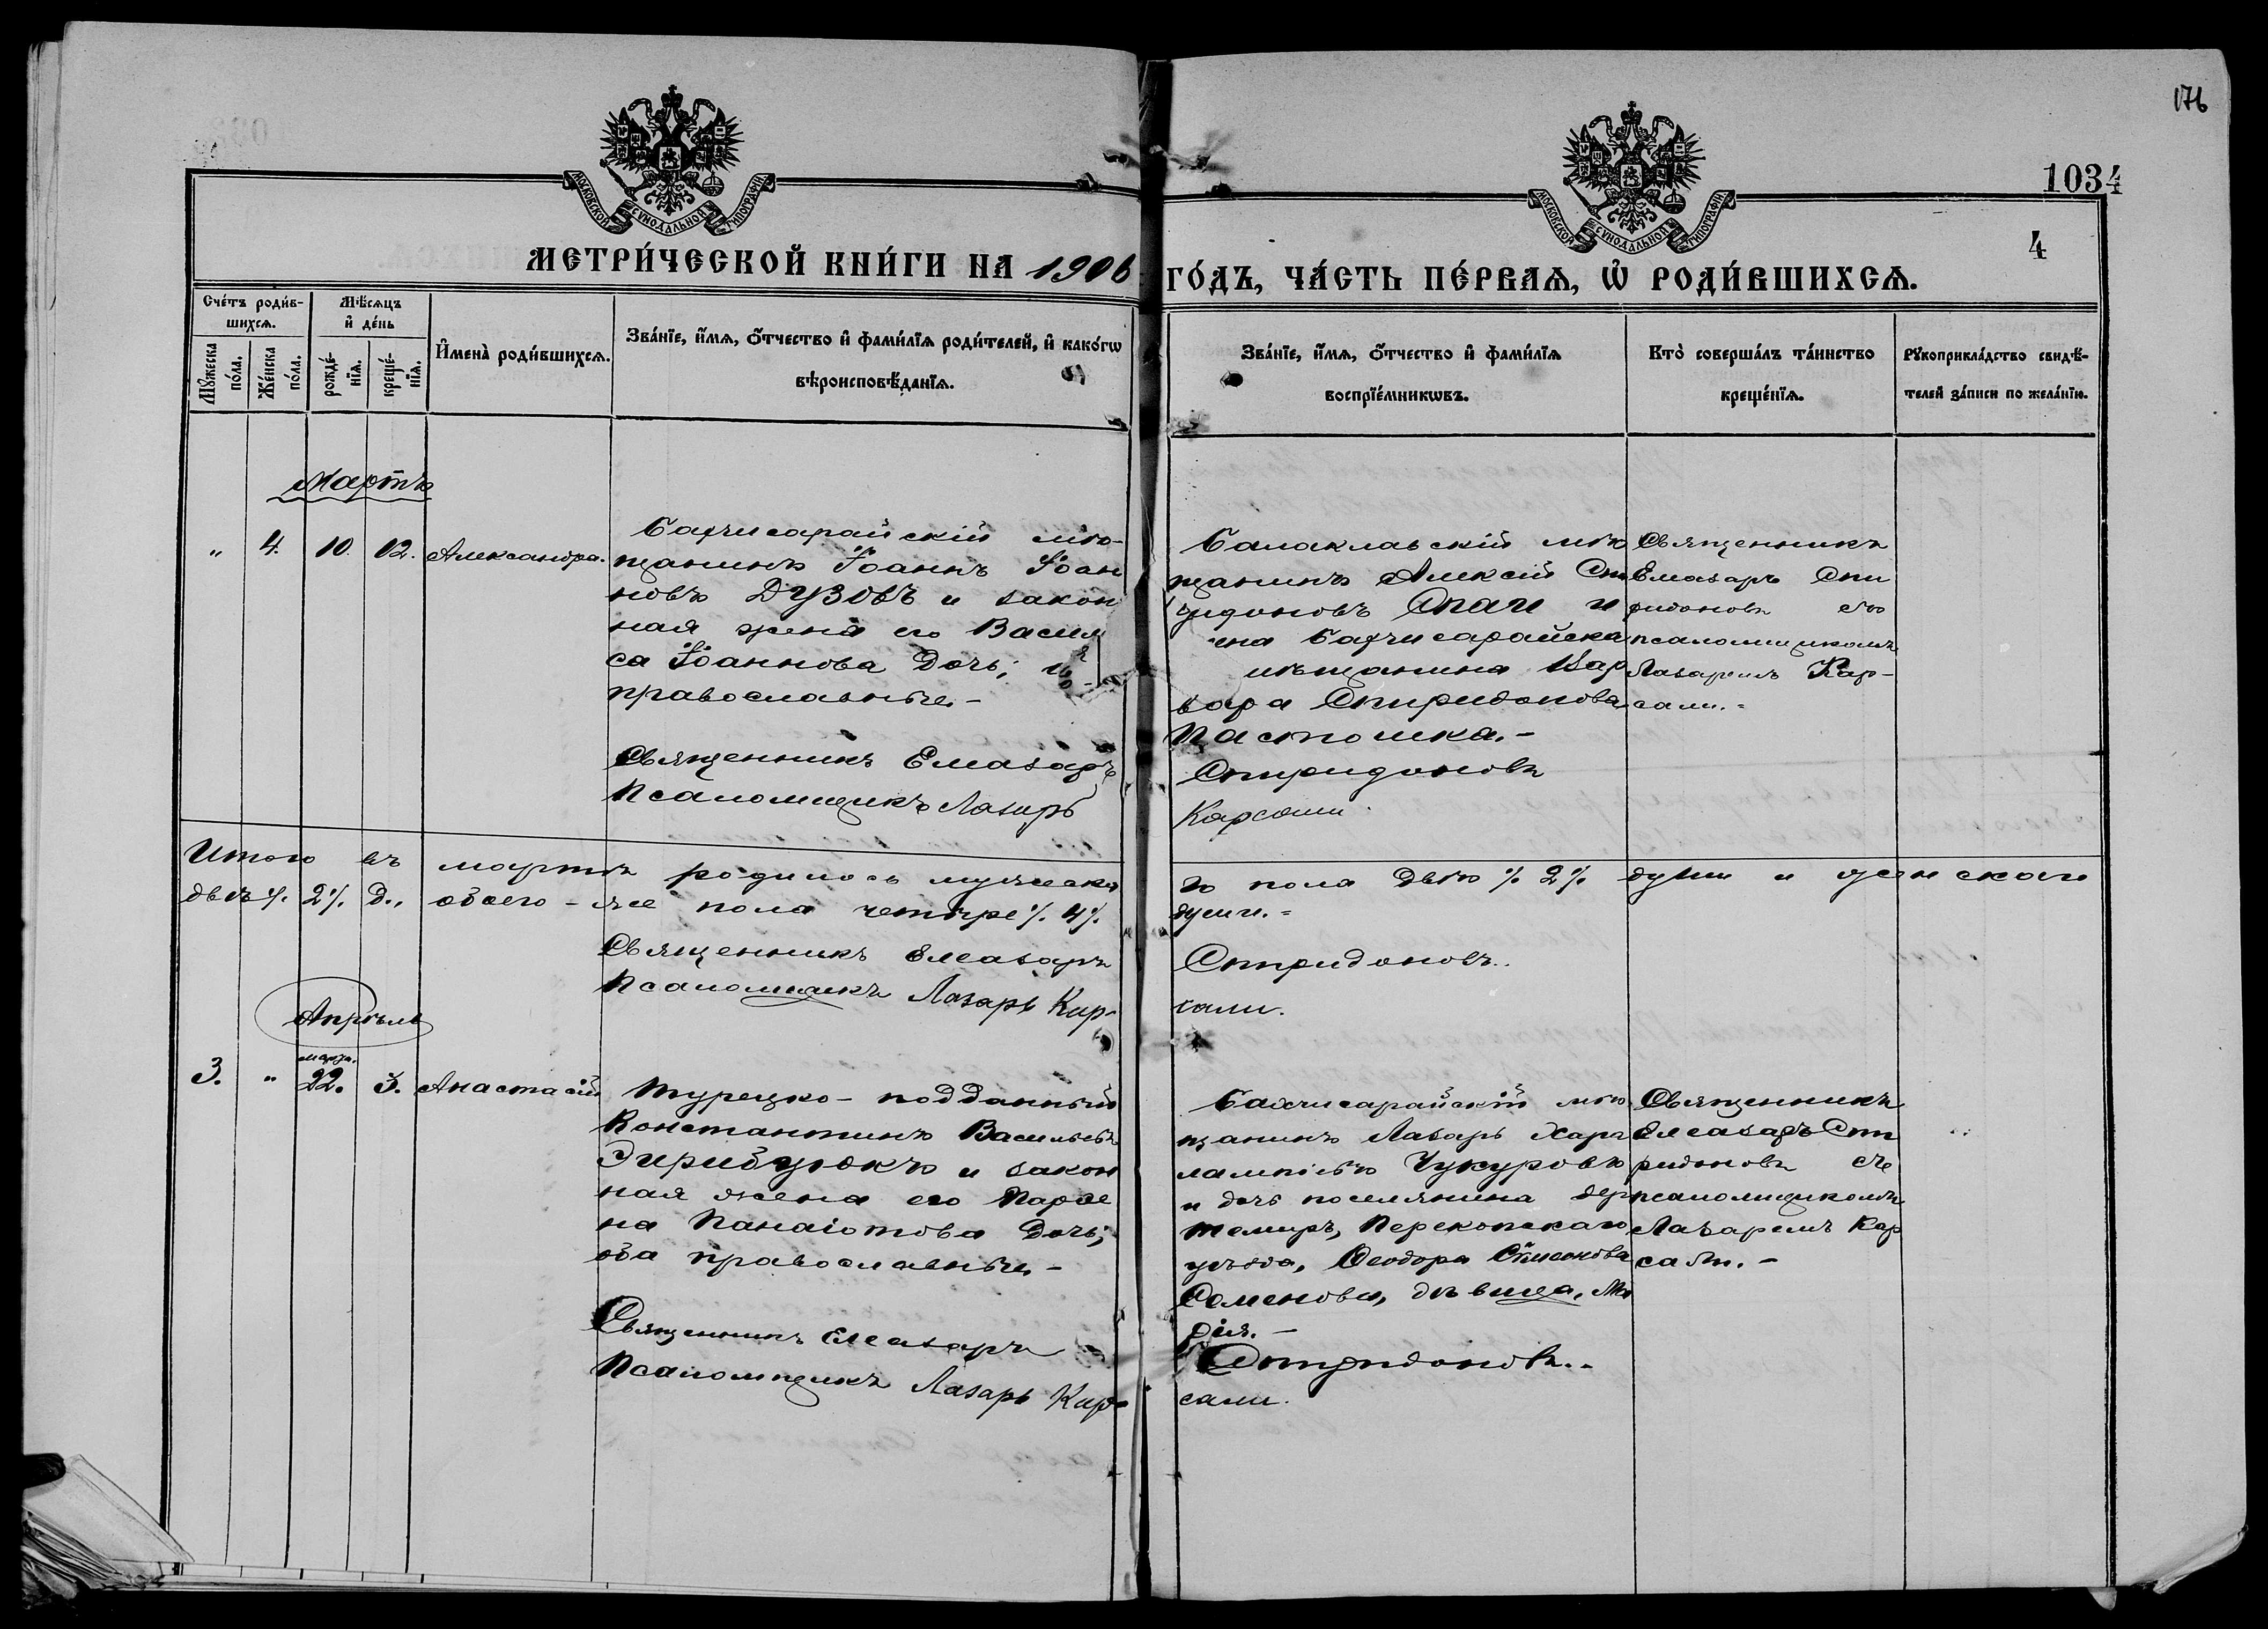 176
1034
4
МОСКОВСКОЙ СѴНОДАЛЬНОЙ ТИПОГРАФІИ.
МОСКОВСКОЙ СѴНОДАЛЬНОЙ ТИПОГРАФІИ.
МЕТРИ́ЧЕСКОЙ КНИ́ГИ НА 1906
ГО́ДЪ, ЧА́СТЬ ПЕ́РВАѦ, Ѡ РОДИ́ВШИХСѦ.
Сче́тъ роди́в-
шихсѧ.
Мꙋ́жеска
по́ла.
Же́нска
по́ла.
Мѣ́сѧцъ
и҆ де́нь
рожде́-
нїѧ.
креще́-
нїѧ.
И҆мена̀ роди́вшихсѧ.
Зва́нїе, и҆́мѧ, ѻ҆́тчество и҆ фами́лїѧ роди́телей, и҆ како́гѡ
вѣроисповѣ́данїѧ.
Зва́нїе, и҆́мѧ, ѻ҆́тчество и҆ фами́лїѧ
воспрїе́мникѡвъ.
Кто̀ соверша́лъ та́инство
креще́нїѧ.
Рꙋкоприкла́дство свидѣ́-
телей за́писи по жела́нїю.
Мартъ
" 4. 10. 12. Александра.
Бахчисарайскій мѣ-
щанинъ Іоаннъ Іоан
новъ ДУЗОВЪ и закон
ная жена его Васили
са Іоаннова дочь;
православные.-
Священникъ Елеазаръ
Псаломщикъ Лазарь
Балаклавскій мѣ
щанинъ Алексій Спи
ридоновъ и
жена Бахчисарайска
мѣщанина Вар
вара Спиридонова
Пастошка.-
Спиридоновъ
Карсали
Священникъ
Елеазаръ Спи
ридоновъ съ
псаломщикомъ
Лазаремъ Кар-
сали.=
Итого въ мартѣ родилось мужеска
го пола двѣ % 2 % души и женскаго
двѣ %. 2 %. д., обоего-же пола четыре %. 4 %.
души.=
Священникъ Елеазаръ
Спиридоновъ.
Псаломщикъ Лазарь Кар-
сали.
Апрѣль
марта.
3. " 22. 3. Анастасій
Турецко-подданный
Константинъ Васильевъ
Эирибуюкъ и закон
ная жена его Парѳе
на Панаіотова дочь;
оба православные.-
Священникъ Елеазаръ
Псаломщикъ Лазарь Кар-
Бахчисарайскій мѣ
щанинъ Лазарь Хара
лампіевъ Чукуровъ
и дочь поселянина дер
Темиръ, Перекопскаго
уѣзда, Ѳеодора Симеонова
Семенова, дѣвица, Ма
рія.-
Спиридоновъ.-
сали.
Священникъ
Елеазаръ Спи
ридоновъ съ
псаломщикомъ
Лазаремъ Кар
сали.-